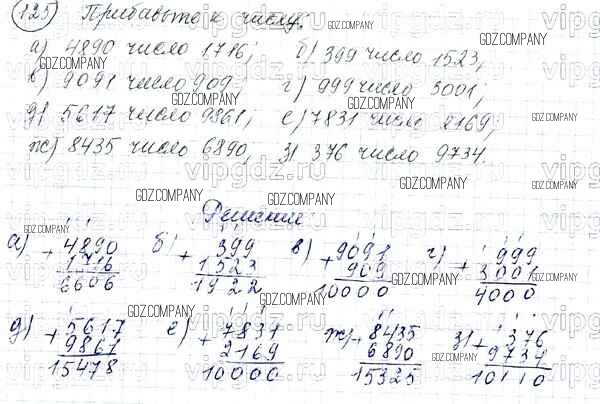 125 Прибавьте к числу:
а) 4890 число 1716; б) 399 число 1523;
в) 9091 число 909; г) 999 число 3001;
д) 5617 число 9861; е) 7831 число 2169;
ж) 8435 число 6890; з) 376 число 9734.
Решение:
а) + 4890 б) + 399 в) + 9091 г) + 999
1716 1523 909 3001
6606 1922 10000 4000
д) + 5617 е) + 7831 ж) + 8435 з) + 376
9861 2169 6890 9734
15478 10000 15325 10110